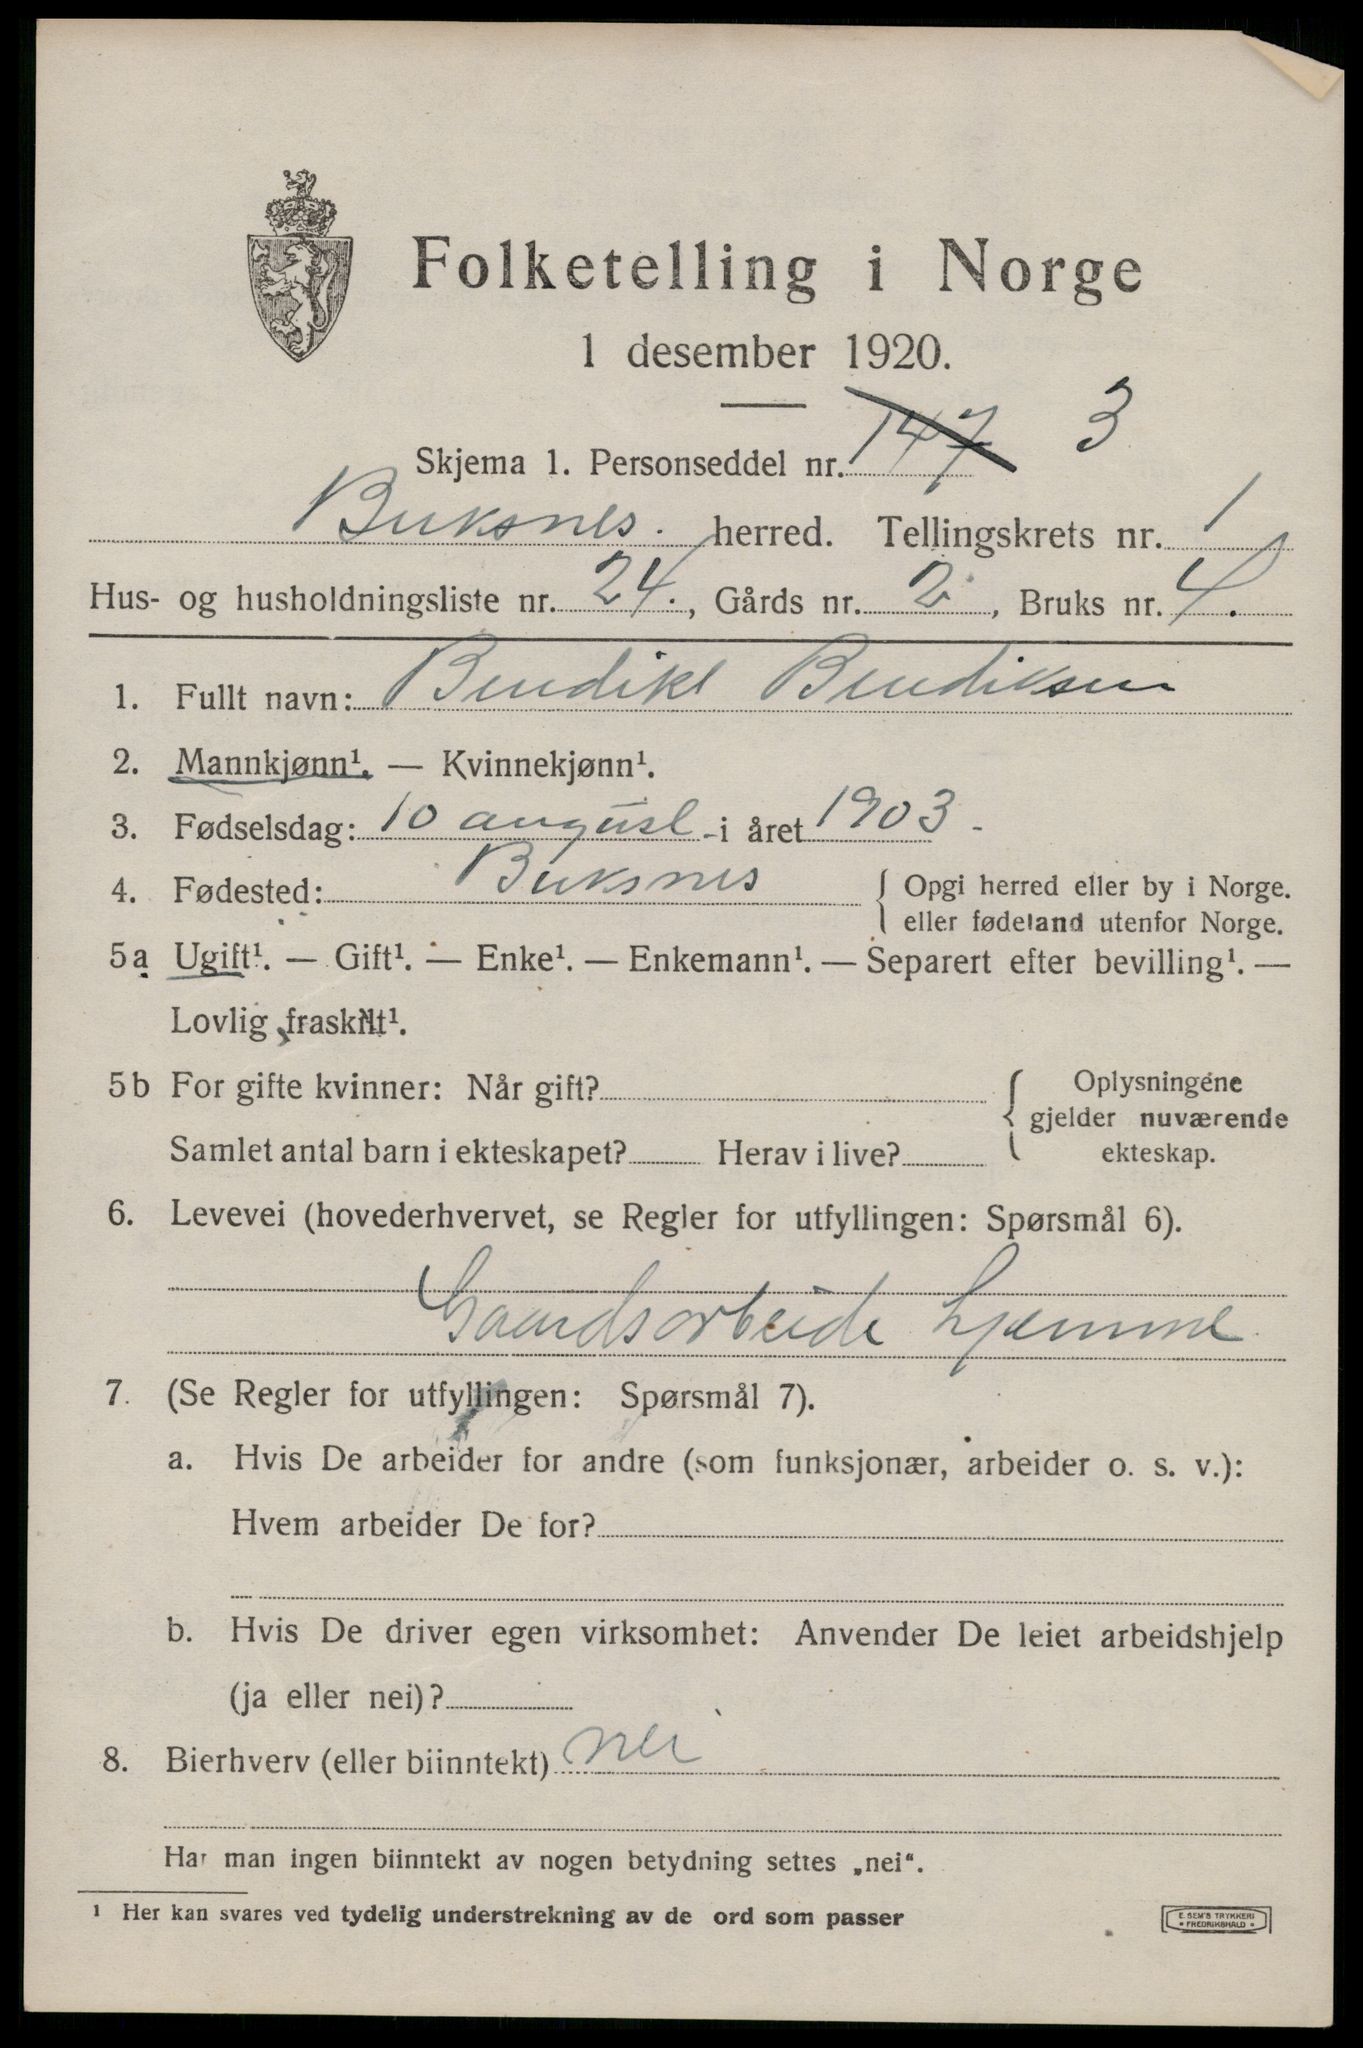 Folketelling i Norge
1 desember 1920.
Skjema 1. Personseddel nr. 147 3
Buksnes. herred. Tellingskrets nr. 1
Hus- og husholdningsliste nr. 24., Gårds nr. 2, Bruks nr. 4.
1. Fullt navn: Bendikt Bendiksen
2. Mannkjønn¹. — Kvinnekjønn¹.
3. Fødselsdag: 10 august - i året 1903 -
4. Fødested: Buksnes { Opgi herred eller by i Norge.
eller fødeland utenfor Norge.
5a Ugift¹. — Gift¹. — Enke¹. — Enkemann¹. — Separert efter bevilling¹. —
Lovlig fraskilt¹.
5b For gifte kvinner: Når gift? { Oplysningene
gjelder nuværende
Samlet antal barn i ekteskapet? Herav i live? ekteskap.
6. Levevei (hovederhvervet, se Regler for utfyllingen: Spørsmål 6).
Gaardsarbeide hjemme
7. (Se Regler for utfyllingen: Spørsmål 7).
a. Hvis De arbeider for andre (som funksjonær, arbeider o. s. v.):
Hvem arbeider De for?
b. Hvis De driver egen virksomhet: Anvender De leiet arbeidshjelp
(ja eller nei)?
8. Bierhverv (eller biinntekt) nei
Har man ingen biinntekt av nogen betydning settes „nei“.
¹ Her kan svares ved tydelig understrekning av de ord som passer
E. SEM'S TRYKKERI
• FREDRIKSHALD •